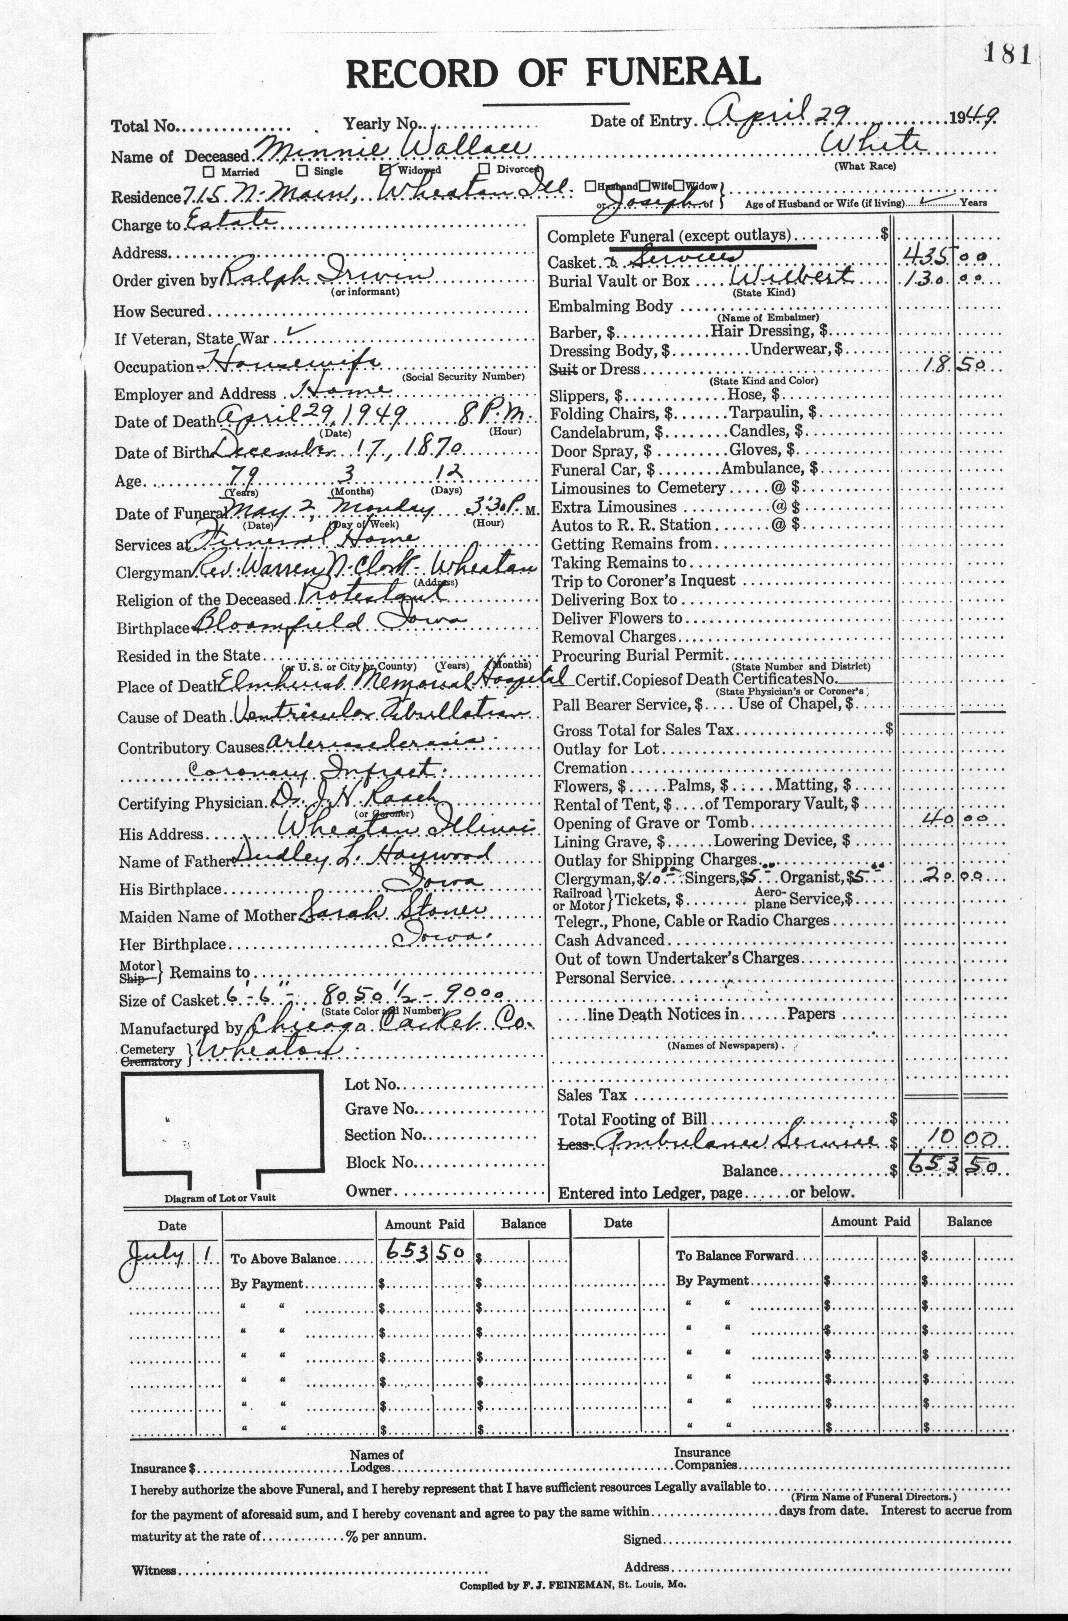 181
RECORD OF FUNERAL
Total No. Yearly No. Date of Entry April 29 1949
Name of Deceased Minnie Wallace White
Married Single Widowed Divorced (What Race)
Residence 715 N. Main, Wheaton Ill. Husband Wife Widow or Joseph of Age of Husband or Wife (if living) ✓ Years
Charge to Estate
Address
Order given by Ralph Irwin
(or informant)
How Secured
If Veteran, State War ✓
Occupation Housewife
(Social Security Number)
Employer and Address Home
Date of Death April 29, 1949 8 P.M.
(Date) (Hour)
Date of Birth December 17, 1870
Age 79 3 12
(Years) (Months) (Days)
Date of Funeral May 2, Monday 3:30 P. M.
(Date) (Day of Week) (Hour)
Services at Funeral Home
Clergyman Rev. Warren N. Clark - Wheaton
(Address)
Religion of the Deceased Protestant
Birthplace Bloomfield Iowa
Resided in the State
(or U. S. or City or County) (Years) (Months)
Place of Death Elmhurst Memorial Hospital
Cause of Death Ventricular Fibrillation
Contributory Causes Arteriosclerosis
Coronary Infract.
Certifying Physician Dr. J. H. Raach
(or Coroner)
His Address Wheaton Illinois
Name of Father Dudley L. Haywood
His Birthplace Iowa
Maiden Name of Mother Sarah Stoner
Her Birthplace Iowa.
Motor Ship } Remains to
Size of Casket 6'-6"- 8050 1/2 - 9000
(State Color and Number)
Manufactured by Chicago Casket Co.
Cemetery Crematory } Wheaton
Lot No.
Grave No.
Section No.
Block No.
Owner
Diagram of Lot or Vault
Complete Funeral (except outlays) $
Casket & Services 435 00
Burial Vault or Box Wilbert 130 00
(State Kind)
Embalming Body
(Name of Embalmer)
Barber, $ Hair Dressing, $
Dressing Body, $ Underwear, $
Suit or Dress 18 50
(State Kind and Color)
Slippers, $ Hose, $
Folding Chairs, $ Tarpaulin, $
Candelabrum, $ Candles, $
Door Spray, $ Gloves, $
Funeral Car, $ Ambulance, $
Limousines to Cemetery @ $
Extra Limousines @ $
Autos to R. R. Station @ $
Getting Remains from
Taking Remains to
Trip to Coroner's Inquest
Delivering Box to
Deliver Flowers to
Removal Charges
Procuring Burial Permit
(State Number and District)
Certif. Copies of Death Certificates No.
(State Physician's or Coroner's)
Pall Bearer Service, $ Use of Chapel, $
Gross Total for Sales Tax $
Outlay for Lot
Cremation
Flowers, $ Palms, $ Matting, $
Rental of Tent, $ of Temporary Vault, $
Opening of Grave or Tomb 40 00
Lining Grave, $ Lowering Device, $
Outlay for Shipping Charges
Clergyman, $10 00 Singers, $5 - Organist, $5 00 20 00
Railroad or Motor } Tickets, $ Aeroplane Service, $
Telegr., Phone, Cable or Radio Charges
Cash Advanced
Out of town Undertaker's Charges
Personal Service
line Death Notices in Papers
(Names of Newspapers)
Sales Tax
Total Footing of Bill $
Less Ambulance Service $ 10 00
Balance $ 653 50
Entered into Ledger, page or below.
Date Amount Paid Balance Date Amount Paid Balance
July 1 To Above Balance 653 50 $ To Balance Forward $
By Payment $ $ By Payment $ $
" " $ $ " " $ $
" " $ $ " " $ $
" " $ $ " " $ $
" " $ $ " " $ $
" " $ $ " " $ $
" " $ $ " " $ $
Insurance $ Names of Lodges Insurance Companies
I hereby authorize the above Funeral, and I hereby represent that I have sufficient resources Legally available to
(Firm Name of Funeral Directors.)
for the payment of aforesaid sum, and I hereby covenant and agree to pay the same within days from date. Interest to accrue from
maturity at the rate of % per annum. Signed
Witness Address
Compiled by F. J. FEINEMAN, St. Louis, Mo.